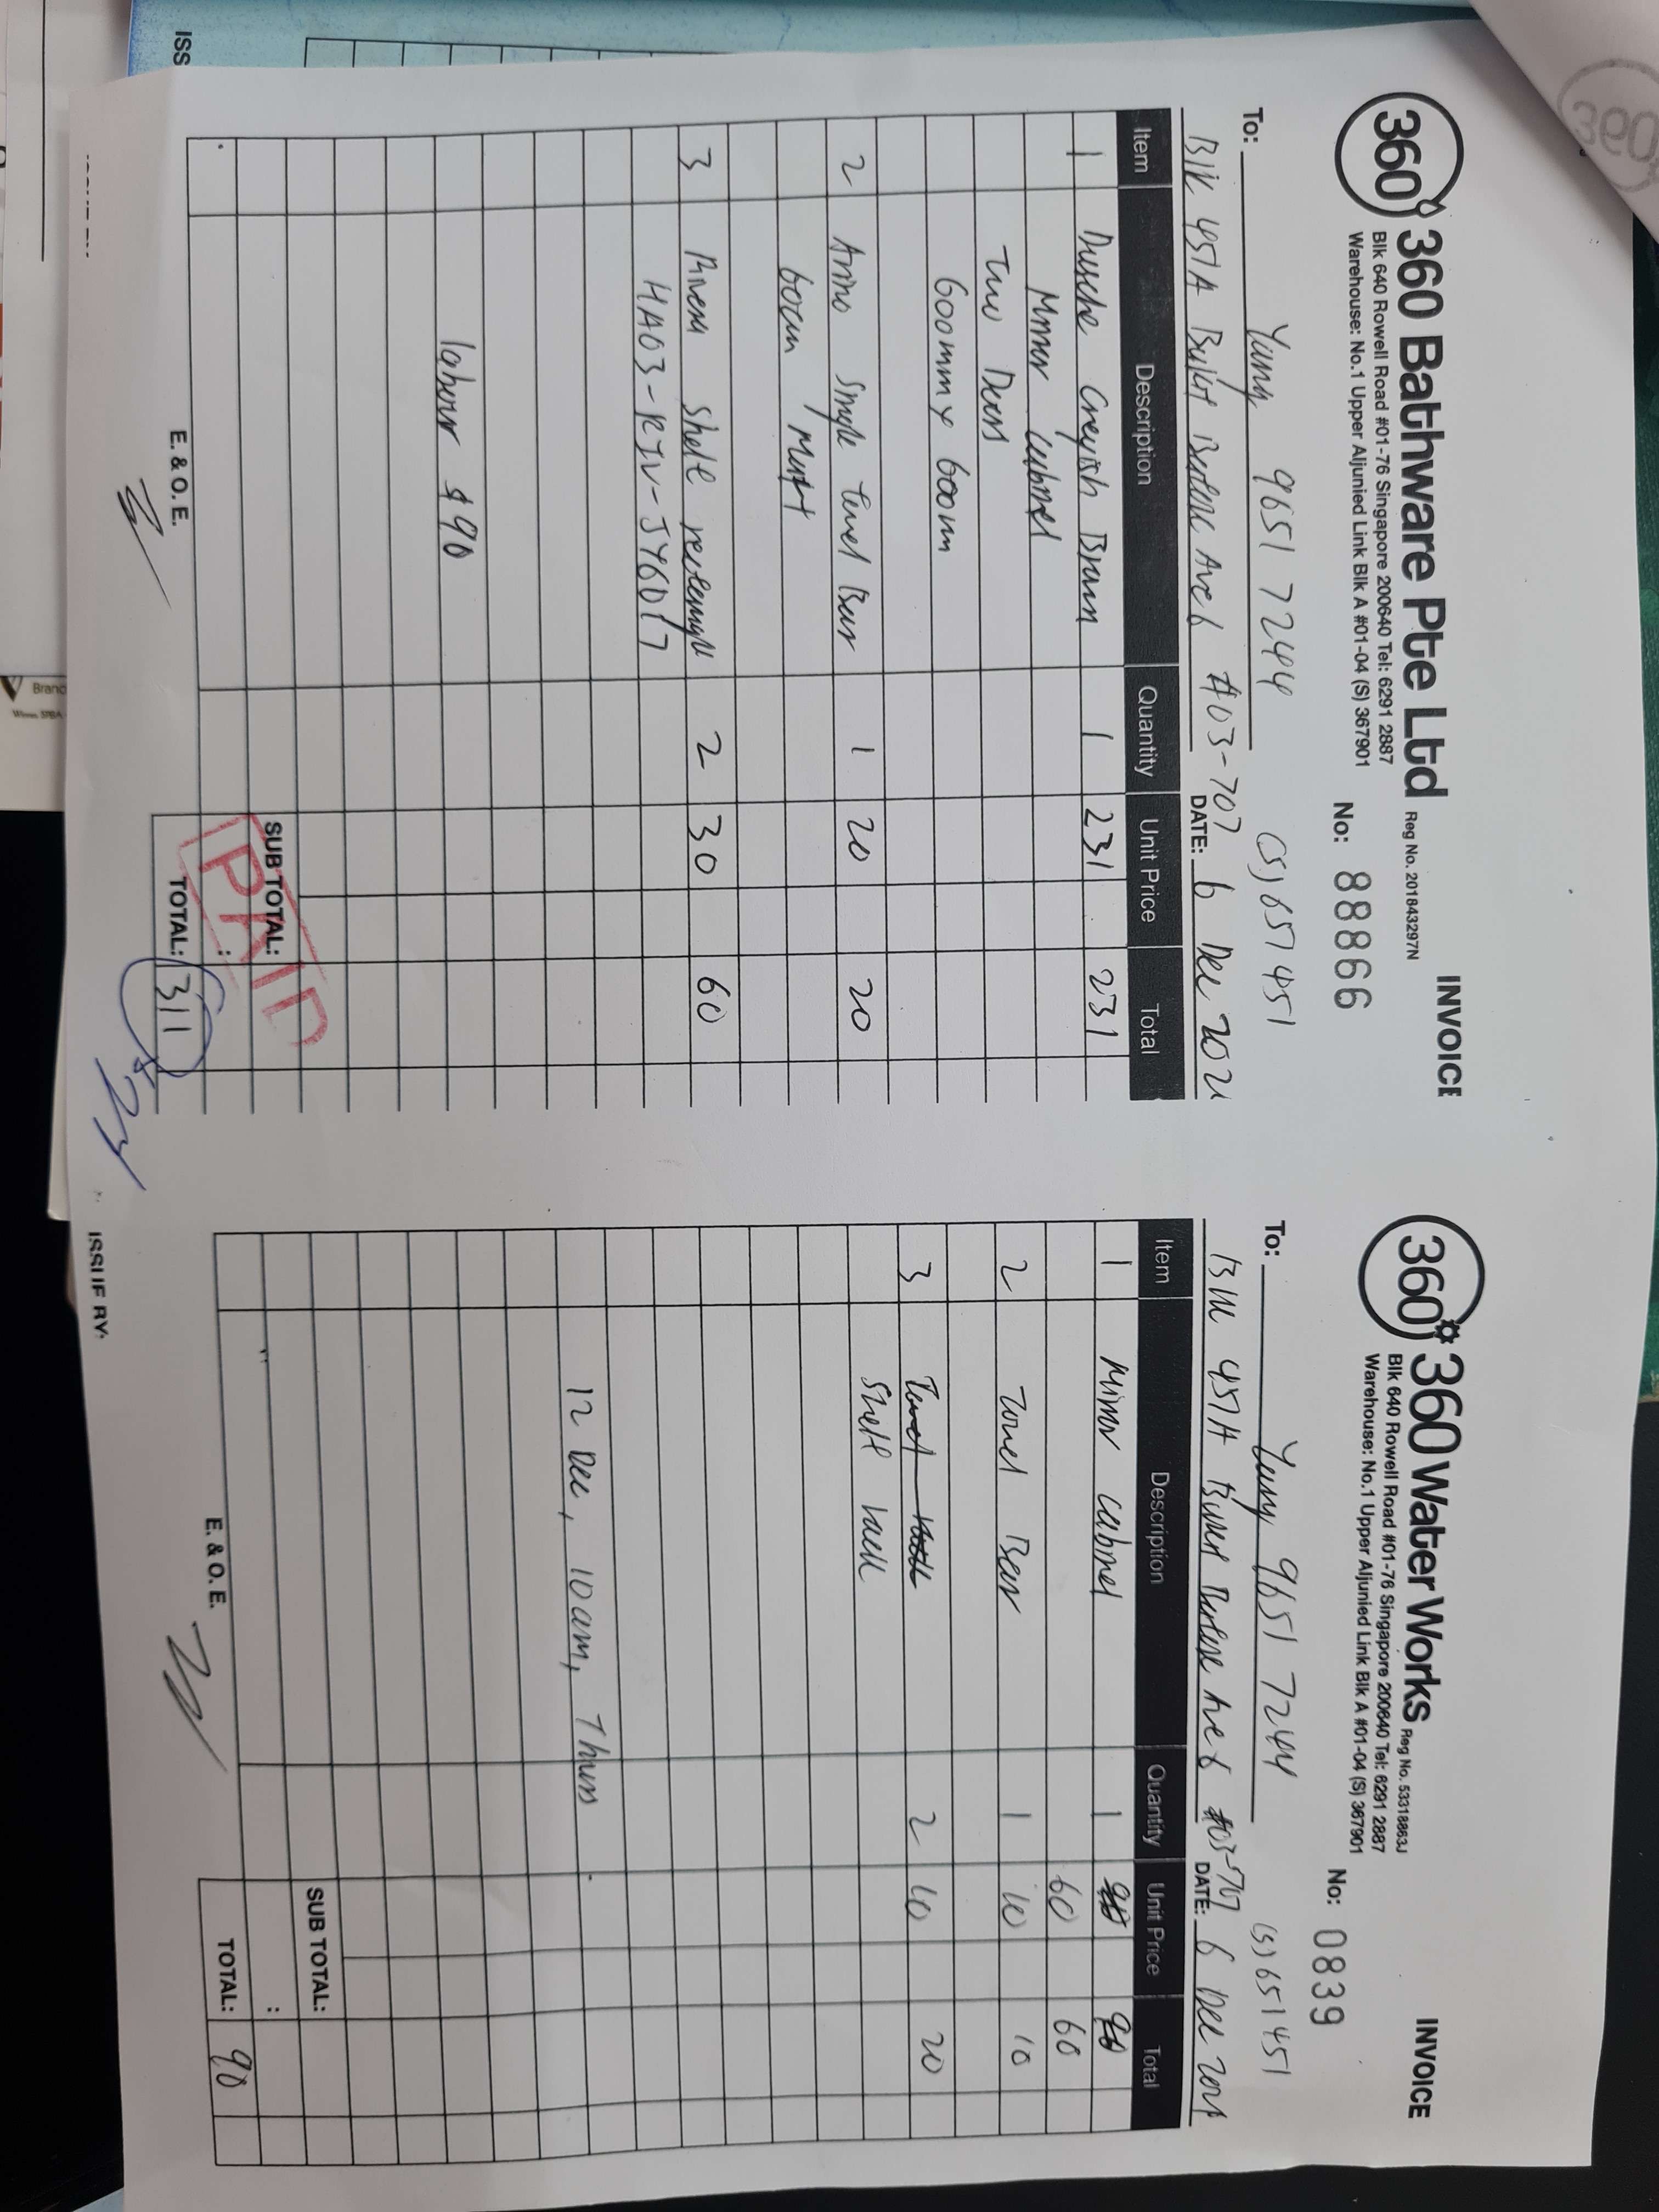 360
360 Bathware Pte Ltd Reg No. 201843297N
INVOICE
Blk 640 Rowell Road #01-76 Singapore 200640 Tel: 6291 2887
Warehouse: No.1 Upper Aljunied Link Blk A #01-04 (S) 367901
No: 88866
To: Yung 9651 7244 (S) 651451
Blk 451A Bukit Batok Ave 6 #03-707 DATE: 6 Dec 202
Item Description Quantity Unit Price Total
1 Dusche Greyish Brown 1 231 231
Mirror Cabinet
Two Doors
600mm x 600mm
2 Arino Single Towel Bar 1 20 20
60cm Matt
3 Rivera Shelf rectangle 2 30 60
HA03-RIV-JY6017
labour $90
SUB TOTAL:
PAID
:
E. & O. E.
TOTAL: 311
360
360 WaterWorks Reg No. 53318863J
INVOICE
Blk 640 Rowell Road #01-76 Singapore 200640 Tel: 6291 2887
Warehouse: No.1 Upper Aljunied Link Blk A #01-04 (S) 367901
No: 0839
To: Yung 9651 7244 (S) 651451
Blk 451A Ave 6 #03-707 DATE: 6 Dec
Item Description Quantity Unit Price Total
1 Mirror Cabinet 1 90 90
60 60
2 Towel Bar 1 10 10
3 Towel 2 10 20
Shelf rack
12 Dec, 10am, Thurs
SUB TOTAL:
:
E. & O. E.
TOTAL: 90
ISSUE BY:
ISS
Branc
360